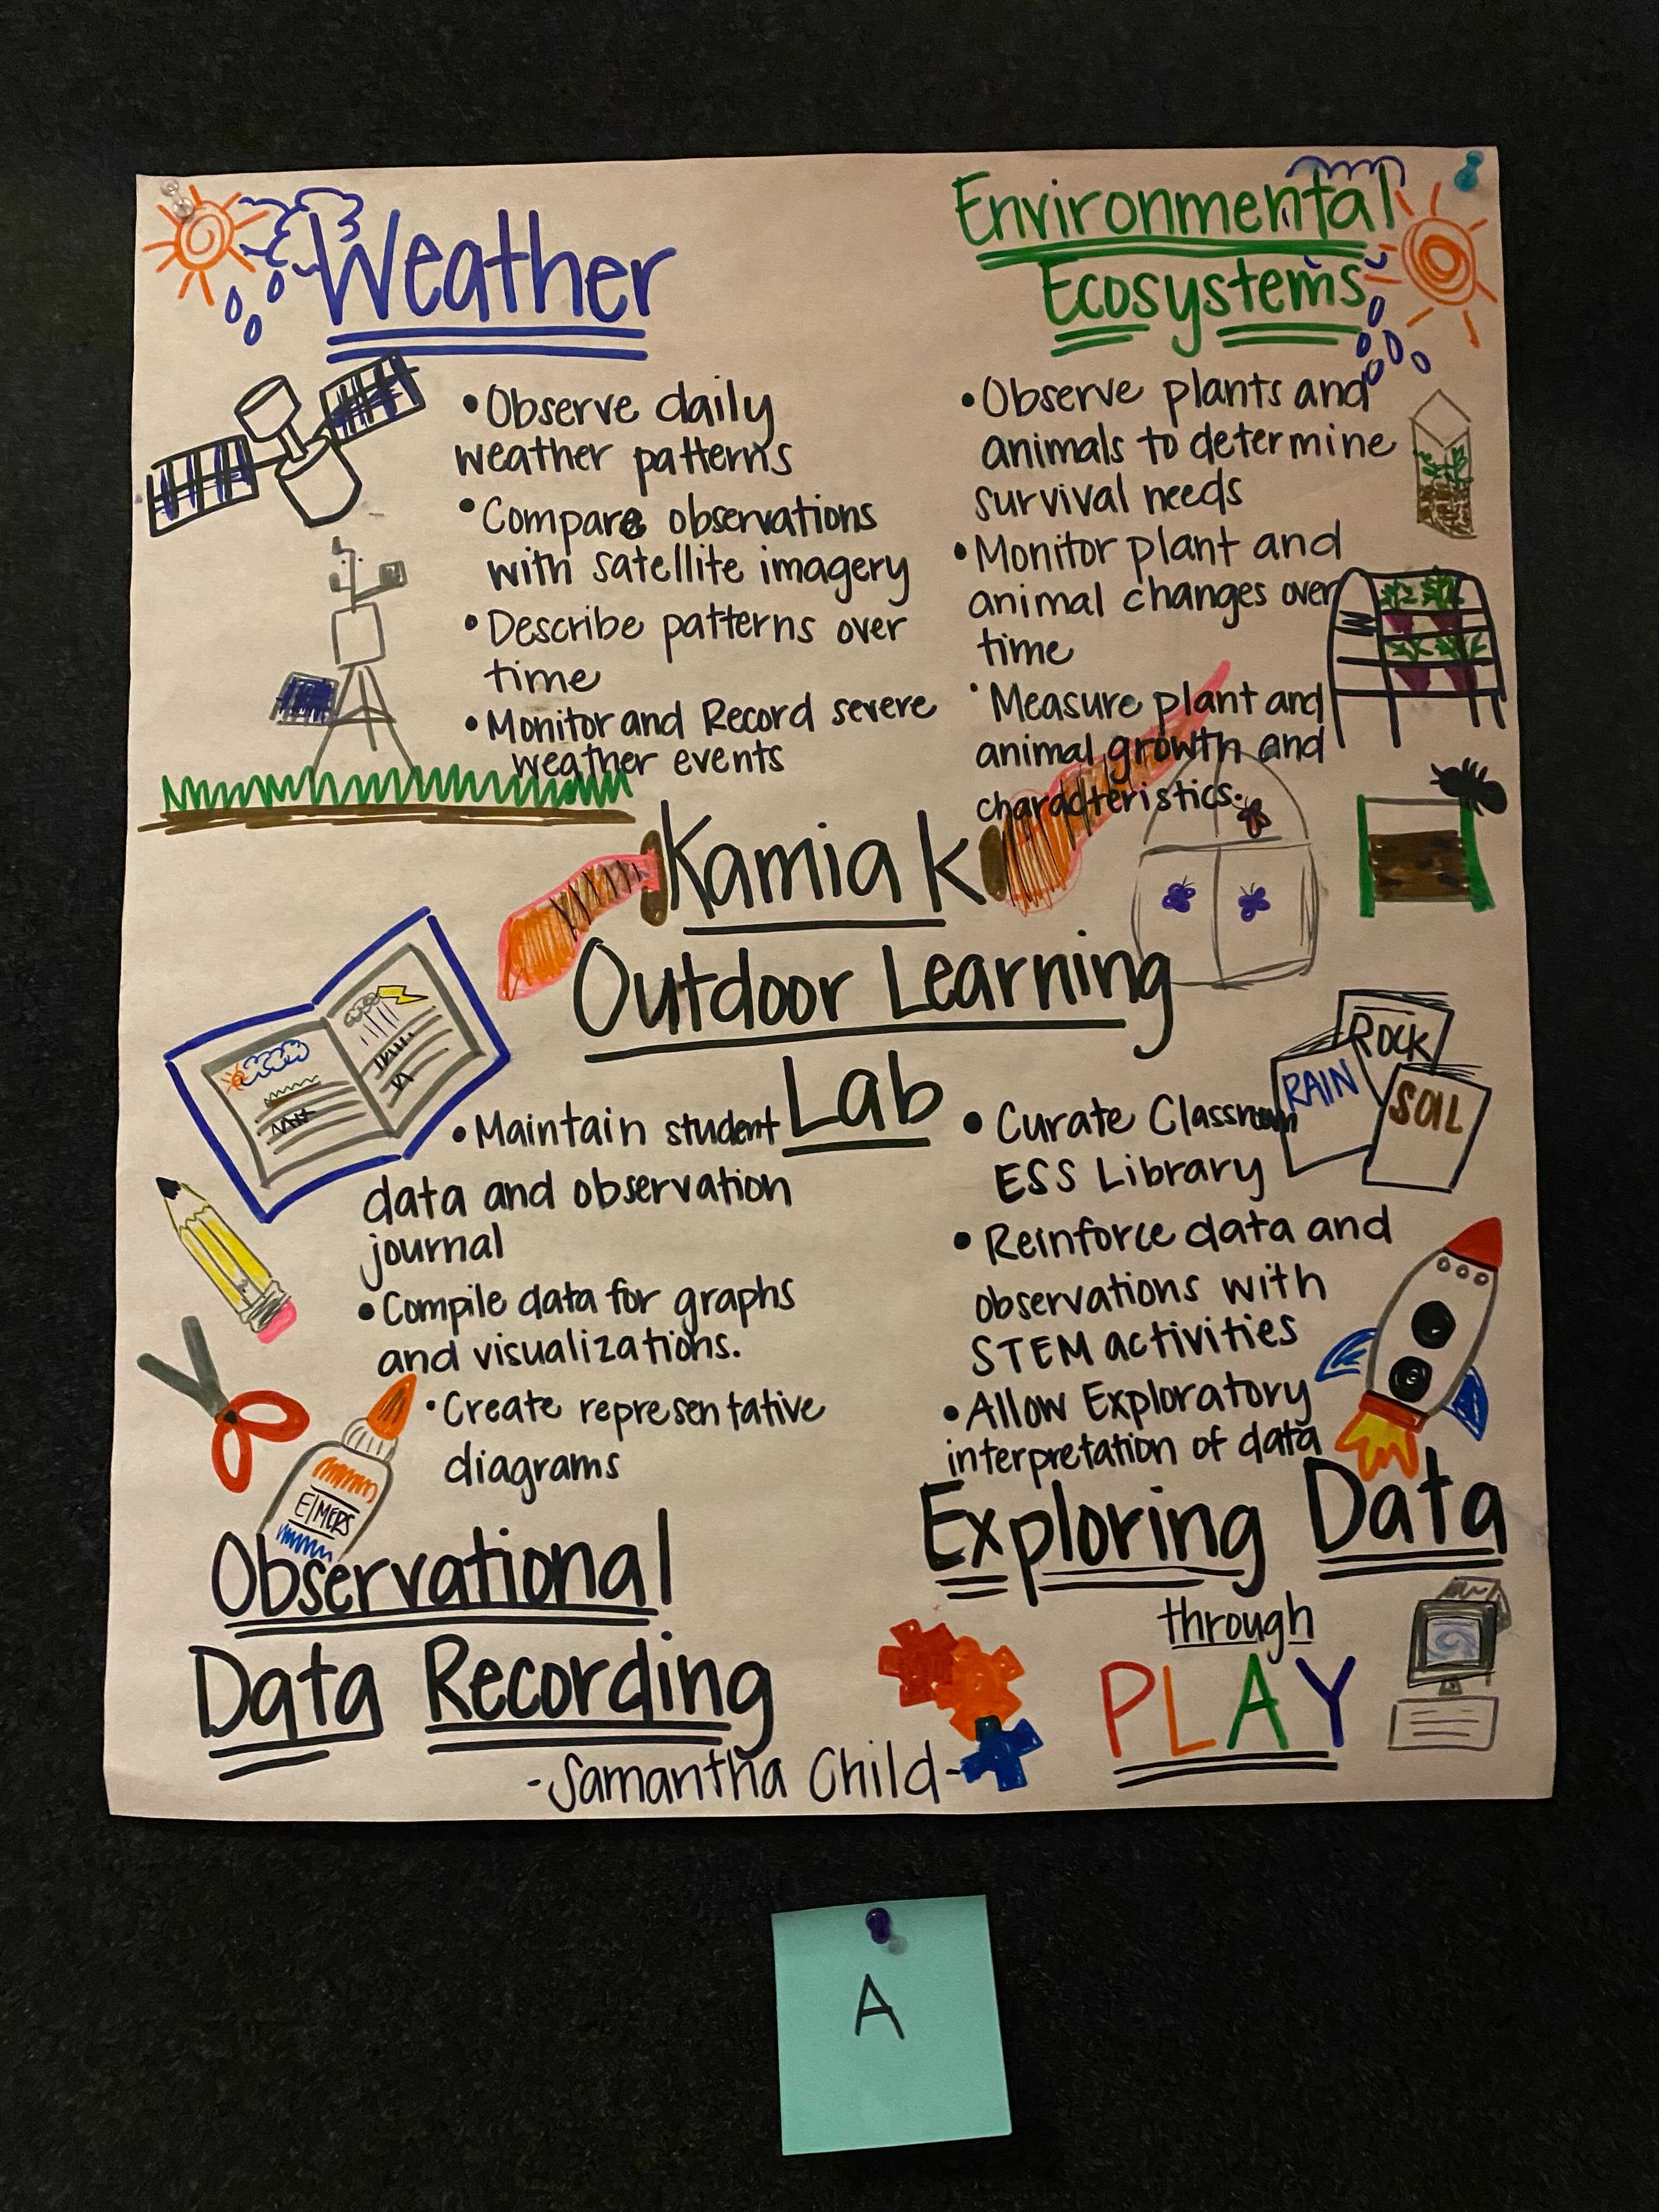 Weather
• Observe daily
weather patterns
• Compare observations
with satellite imagery
• Describe patterns over
time
• Monitor and Record severe
weather events
Environmental
Ecosystems
• Observe plants and
animals to determine
survival needs
• Monitor plant and
animal changes over
time
• Measure plant and
animal growth and
characteristics.
Kamiak
Outdoor Learning
Lab
• Maintain student
data and observation
journal
• Compile data for graphs
and visualizations.
• Create representative
diagrams
ElMERS
Observational
Data Recording
ROCK
RAIN
SOIL
• Curate Classroom
ESS Library
• Reinforce data and
observations with
STEM activities
• Allow Exploratory
interpretation of data
Exploring Data
through
PLAY
-Samantha Child-
A